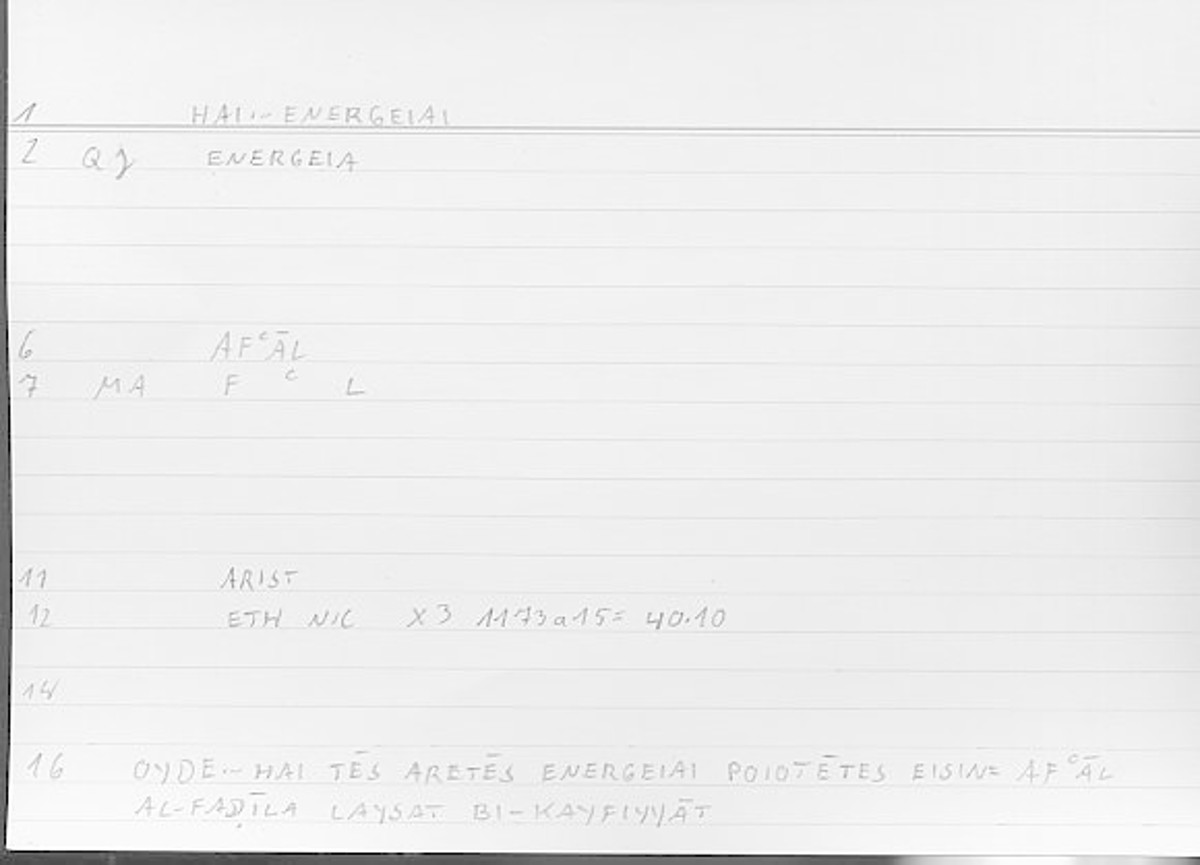 1 HAI..- ENERGEIAI
2 Qg ENERGEIA
6 AFᶜĀL
7 MA F ᶜ L
11 ARIST
12 ETH NIC X3 1173a15= 40.10
14
16 OYDE..- HAI TĒS ARETĒS ENERGEIAI POIOTĒTES EISIN= AFᶜĀL
AL-FAḌĪLA LAYSAT BI-KAYFIYYĀT